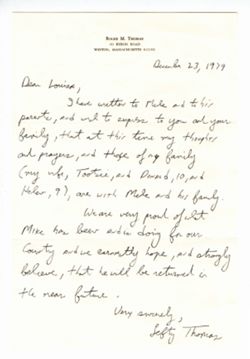 ROGER M. THOMAS
BYRON ROAD
WESTON, MASSACHUSETTS
December 23, 1979
Dear Louisa,
I have written to Mike and to his
parents, and want to express to you and your
family, that at this time my thoughts
and prayers, and those of my family
(my wife, Tootsie, and Donald, 10, and
Helen, 9), are with Mike and his family.
We are very proud of what
Mike has been and is doing for our
Country and we earnestly hope, and strongly
believe, that he will be returned in
the near future.
Very sincerely,
Lefty Thomas